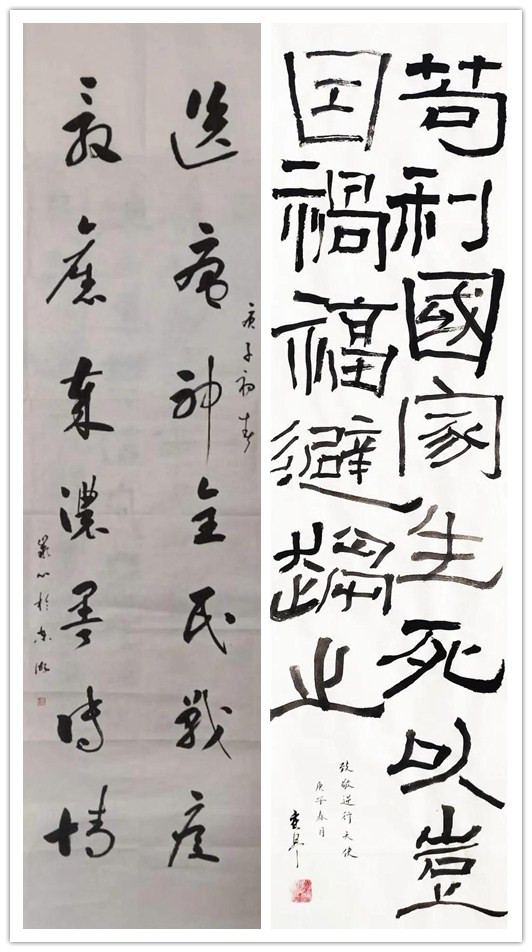 送瘟神全民戰疫
濃墨傳情
庚子初春
苟利國家生死以豈
因禍福避趨之
致敬逆行天使
庚子春月